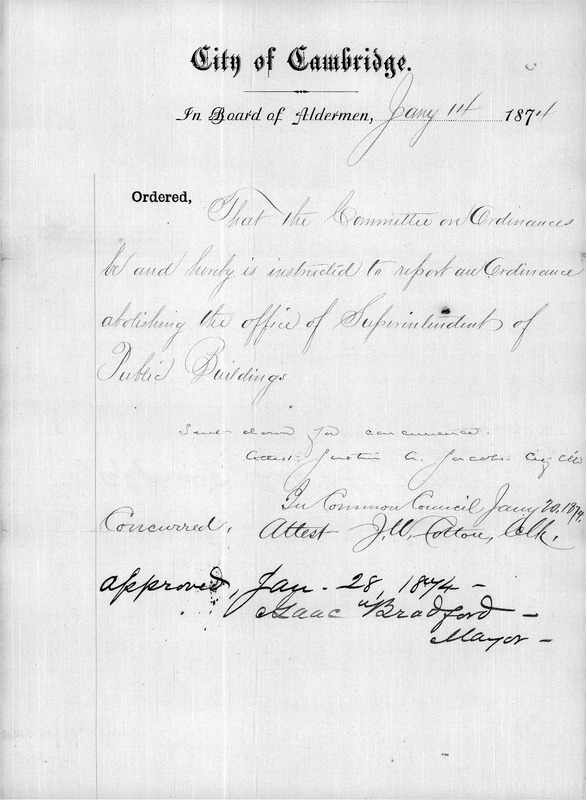 City of Cambridge.
In Board of Aldermen, Jany 14 1874
Ordered, That the Committee on Ordinances
be and hereby is instructed to report an Ordinance
abolishing the office of Superintendent of
Public Buildings
Sent down for concurrence.
Attest. Justin A. Jacobs City Clk
In Common Council Jany 20, 1874.
Concurred. Attest J.W. Cotton, Clk.
Approved, Jan. 28, 1874 -
Isaac Bradford -
Mayor -